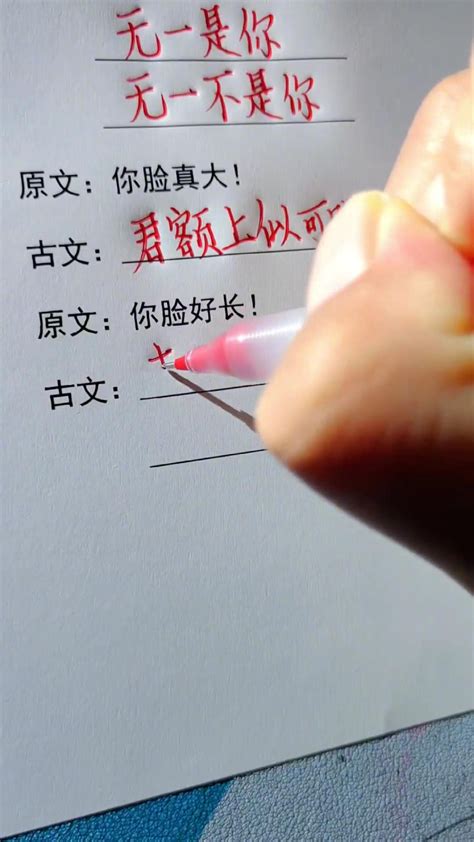 无一是你
无一不是你
原文：你脸真大！
古文：君额上似可
原文：你脸好长！
古文：